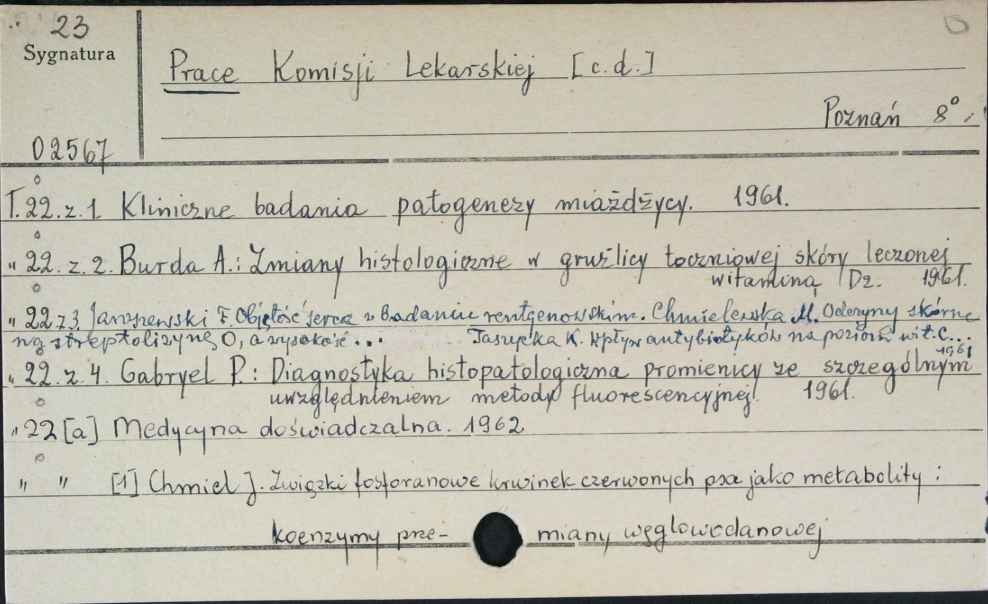 23
Sygnatura
Prace Komisji Lekarskiej [c.d.]
Poznań 8°.
02567
T. 22. z. 1 Kliniczne badania patogenezy miażdżycy. 1961.
" 22. z. 2. Burda A.: Zmiany histologiczne w gruźlicy toczniowej skóry leczonej
witaminą D2. 1961.
" 22 z 3. Jaroszewski F. Objętość serca w badaniu rentgenowskim. Chmielewska M. Odczyny skórne
na streptolizynę O, a wysokość ... K. Wpływ antybiotyków na poziom wit. C...
1961
" 22. z. 4. Gabryel P.: Diagnostyka histopatologiczna promienicy ze szczególnym
uwzględnieniem metody fluorescencyjnej. 1961.
" 22 [a] Medycyna doświadczalna. 1962
" " [1] Chmiel J. Związki fosforanowe krwinek czerwonych psa jako metabolity :
koenzymy prze- miany węglowodanowej